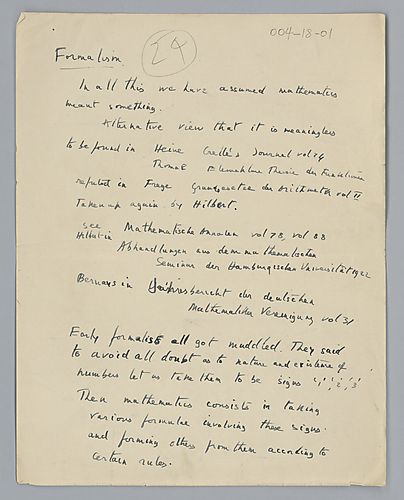 004-18-01
24
Formalism.
In all this we have assumed mathematics
meant something.
Alternative view that it is meaningless
to be found in Heine Crelle's Journal vol 74
Thomae Elementare Theorie der Funktionen
refuted in Frege Grundgesetze der Arithmetik vol II
Taken up again by Hilbert.
see Mathematische Annalen vol 78, vol 88
Hilbert in Abhandlungen aus dem mathematischen
Seminar der Hamburgischen Universität 1922
Bernays in Jahresbericht der deutschen
Mathematiker Vereinigung vol 31
Early formalists all got muddled. They said
to avoid all doubt as to nature and existence of
numbers let us take them to be signs
Then mathematics consists in taking
various formulae involving these signs
and forming others from them according to
certain rules.